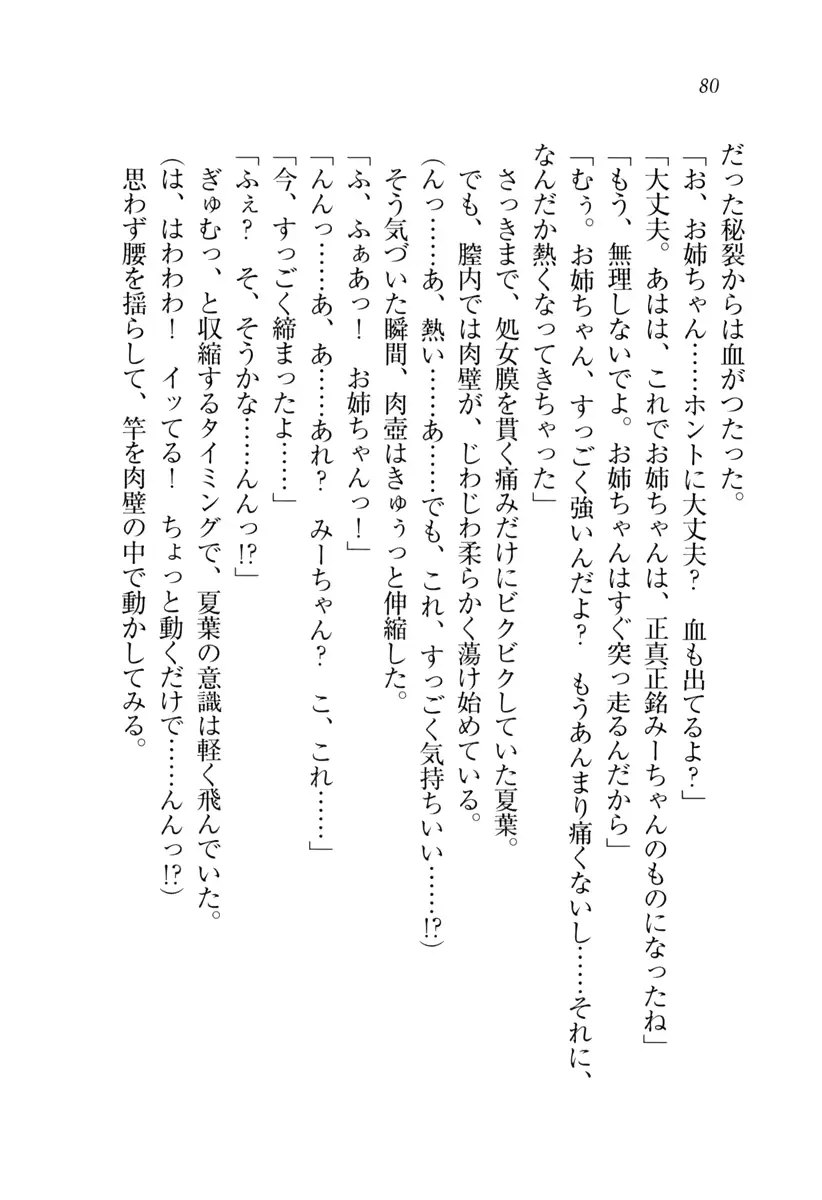 80
だった秘裂からは血がつたった。
「お、お姉ちゃん……ホントに大丈夫？　血も出てるよ？」
「大丈夫。あはは、これでお姉ちゃんは、正真正銘みーちゃんのものになったね」
「もう、無理しないでよ。お姉ちゃんはすぐ突っ走るんだから」
「むぅ。お姉ちゃん、すっごく強いんだよ？　もうあんまり痛くないし……それに、
なんだか熱くなってきちゃった」
さっきまで、処女膜を貫く痛みだけにビクビクしていた夏葉。
でも、膣内では肉壁が、じわじわ柔らかく蕩け始めている。
(んっ……あ、熱い……あ……でも、これ、すっごく気持ちいい……!?)
そう気づいた瞬間、肉壺はきゅぅっと伸縮した。
「ふ、ふぁあっ！　お姉ちゃんっ！」
「んんっ……あ、あ……あれ？　みーちゃん？　こ、これ……」
「今、すっごく締まったよ……」
「ふぇ？　そ、そうかな……んんっ!?」
ぎゅむっ、と収縮するタイミングで、夏葉の意識は軽く飛んでいた。
(は、はわわわ！　イッてる！　ちょっと動くだけで……んんっ!?)
思わず腰を揺らして、竿を肉壁の中で動かしてみる。